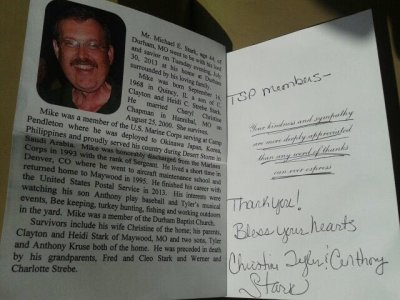 Mr. Michael E. Stark, age 44, of
Durham, MO went to be with his lord
and savior on Tuesday evening, July
30, 2013 at his home at Durham
surrounded by his loving family.
Mike was born September 16,
1968 in Quincy, IL a son of C.
Clayton and Heidi C. Strebe Stark.
He married Cheryl Christine
Chapman in Hannibal, MO on
August 25, 2000. She survives.
Mike was a member of the U.S. Marine Corps serving at Camp
Pendleton where he was deployed to Okinawa Japan, Korea,
Philippines and proudly served his country during Desert Storm in
Saudi Arabia. Mike was honorably discharged from the Marines
Corps in 1993 with the rank of Sergeant. He lived a short time in
Denver, CO where he went to aircraft maintenance school and
returned home to Maywood in 1995. He finished his career with
the United States Postal Service in 2013. His interests were
watching his son Anthony play baseball and Tyler's musical
events, Bee keeping, turkey hunting, fishing and working outdoors
in the yard. Mike was a member of the Durham Baptist Church.
Survivors include his wife Christine of the home; his parents,
Clayton and Heidi Stark of Maywood, MO and two sons, Tyler
and Anthony Kruse both of the home. He was preceded in death
by his grandparents, Fred and Cleo Stark and Werner and
Charlotte Strebe.
TSP members-
Your kindness and sympathy
are more deeply appreciated
than any word of thanks
can ever express
Thank you!
Bless your hearts
Christine Tyler & Anthony
Stark